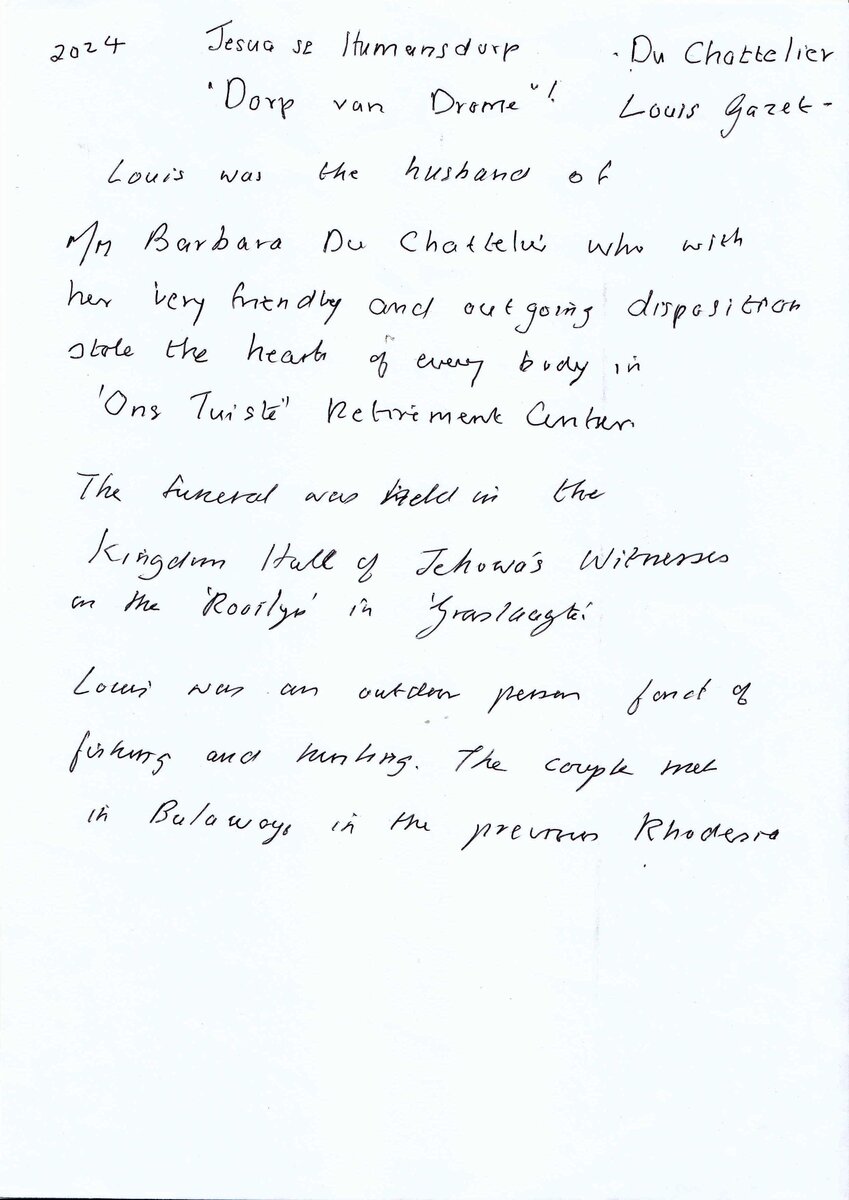 2024 Jesua se Humansdorp Du Chattelier
"Dorp van Drome"! Louis Gazet -
Louis was the husband of
M/M Barbara Du Chattelier who with
her very friendly and outgoing disposition
stole the heart of every body in
'Ons Tuiste" Retirement Center.
The funeral was held in the
Kingdom Hall of Jehowa's Witnesses
on the 'Rooilyn' in 'Graslaagte'
Louis was an outdoor person fond of
fishing and hunting. The couple met
in Bulawayo in the previous Rhodesia